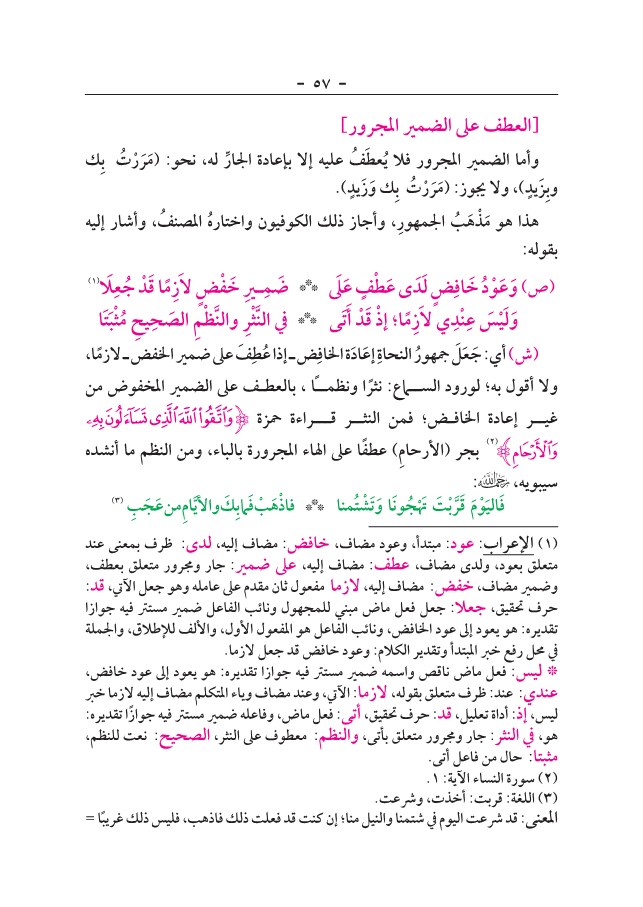 - ٥٧ -
[العطف على الضمير المجرور]
وأما الضمير المجرور فلا يُعطَفُ عليه إلا بإعادة الجارِّ له، نحو: (مَرَرْتُ بِك
وبِزَيدٍ)، ولا يجوز: (مَرَرْتُ بِك وَزَيدٍ).
هذا هو مَذْهَبُ الجمهورِ، وأجاز ذلك الكوفيون واختارهُ المصنفُ، وأشار إليه
بقوله:
(ص) وَعَوْدُ خَافِضٍ لَدَى عَطْفٍ عَلَى ** ضَمِيرِ خَفْضٍ لاَزِمًا قَدْ جُعِلَا(١)
وَلَيْسَ عِنْدِي لاَزِمًا؛ إذْ قَدْ أَتَى ** في النَّثْرِ والنَّظْمِ الصَّحِيحِ مُثْبَتَا
(ش) أي: جَعَلَ جمهورُ النحاةِ إعَادَةَ الخافِضِ-إذا عُطِفَ على ضمير الخفض-لازمًا،
ولا أقول به؛ لورود السماع: نثرًا ونظمًا، بالعطف على الضمير المخفوض من
غير إعادة الخافض؛ فمن النثر قراءة حمزة ﴿وَٱتَّقُوا۟ ٱللَّهَ ٱلَّذِى تَسَآءَلُونَ بِهِۦ
وَٱلۡأَرۡحَامِ﴾(٢) بجر (الأرحامِ) عطفًا على الهاء المجرورة بالباء، ومن النظم ما أنشده
سيبويه، رحمه الله:
فَاليَوْمَ قَرَّبْتَ تَهْجُونَا وَتَشْتُمنا ** فاذْهَبْ فَمابِكَ والأَيَّامِ من عَجَبِ (٣)
(١) الإعراب: عود: مبتدأ، وعود مضاف، خافض: مضاف إليه، لدى: ظرف بمعنى عند
متعلق بعود، ولدى مضاف، عطف: مضاف إليه، على ضمير: جار ومجرور متعلق بعطف،
وضمير مضاف، خفض: مضاف إليه، لازما مفعول ثان مقدم على عامله وهو جعل الآتي، قد:
حرف تحقيق، جعلا: جعل فعل ماض مبني للمجهول ونائب الفاعل ضمير مستتر فيه جوازا
تقديره: هو يعود إلى عود الخافض، ونائب الفاعل هو المفعول الأول، والألف للإطلاق، والجملة
في محل رفع خبر المبتدأ وتقدير الكلام: وعود خافض قد جعل لازما.
* ليس: فعل ماض ناقص واسمه ضمير مستتر فيه جوازا تقديره: هو يعود إلى عود خافض،
عندي: عند: ظرف متعلق بقوله، لازما: الآتي، وعند مضاف وياء المتكلم مضاف إليه لازما خبر
ليس، إذ: أداة تعليل، قد: حرف تحقيق، أتى: فعل ماض، وفاعله ضمير مستتر فيه جوازًا تقديره:
هو، في النثر: جار ومجرور متعلق بأتى، والنظم: معطوف على النثر، الصحيح: نعت للنظم،
مثبتا: حال من فاعل أتى.
(٢) سورة النساء الآية: ١.
(٣) اللغة: قربت: أخذت، وشرعت.
المعنى: قد شرعت اليوم في شتمنا والنيل منا؛ إن كنت قد فعلت ذلك فاذهب، فليس ذلك غريبًا =